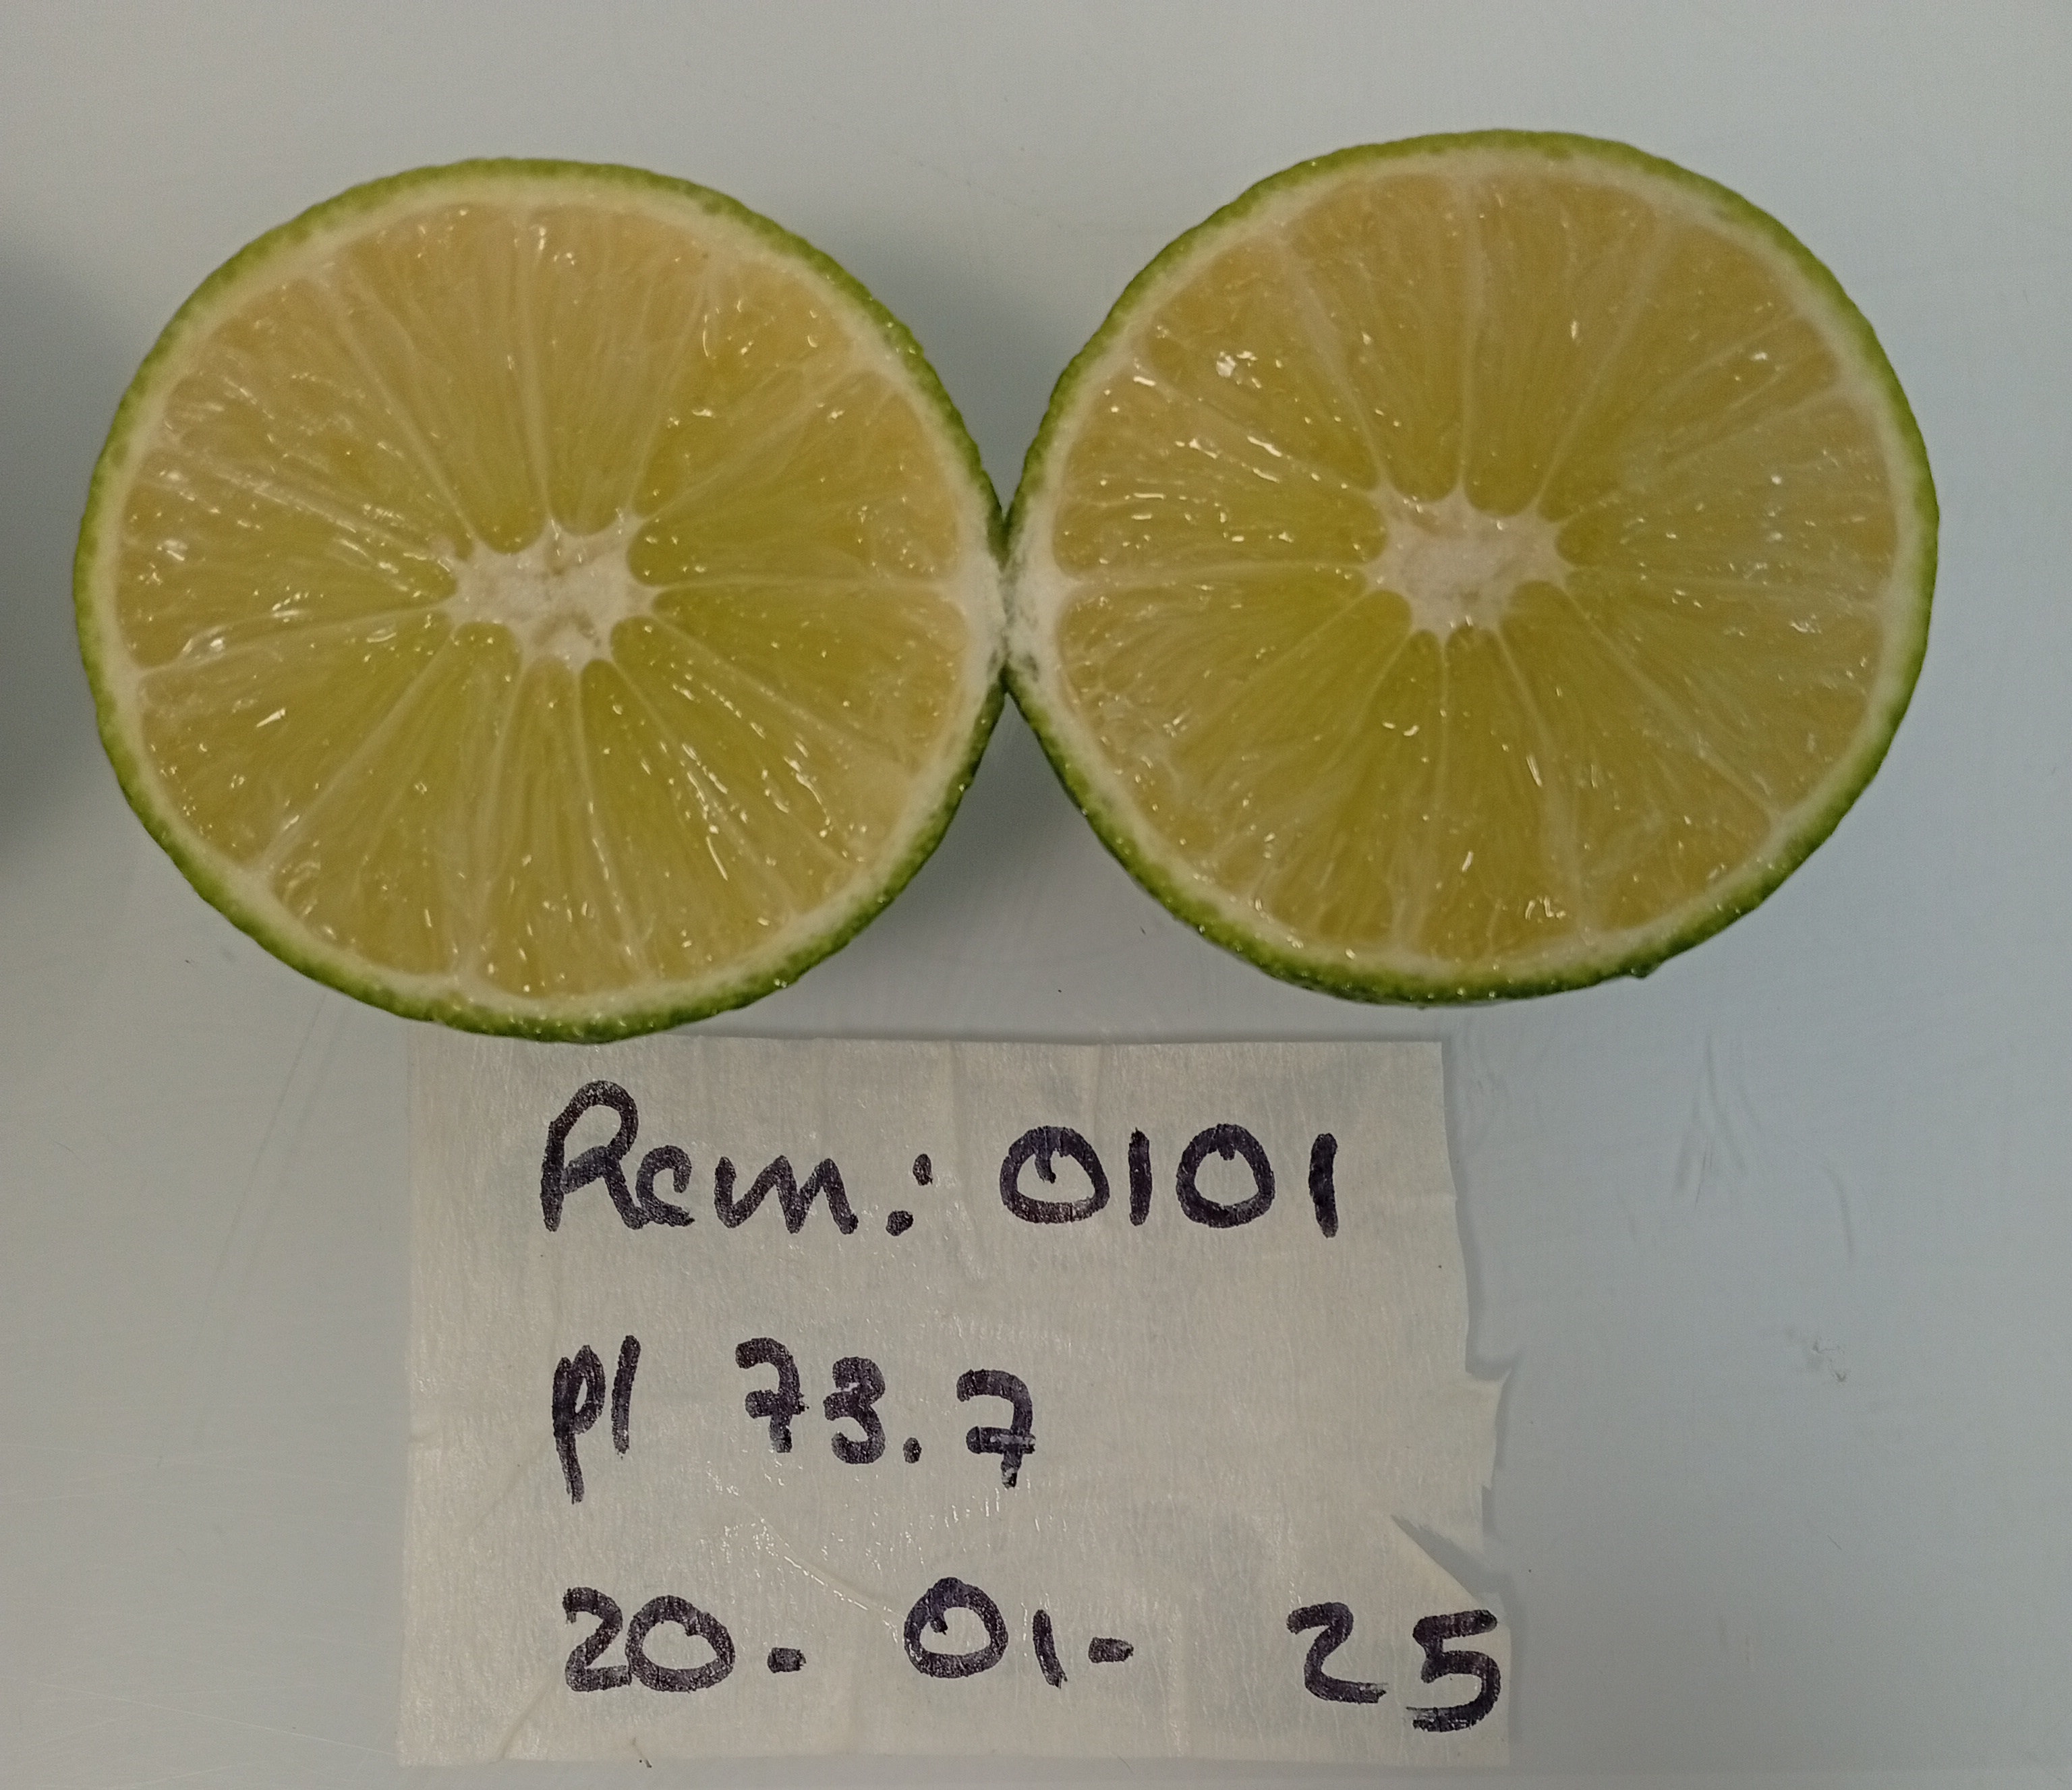 Rem.: 0101
pl 73.7
20-01-25